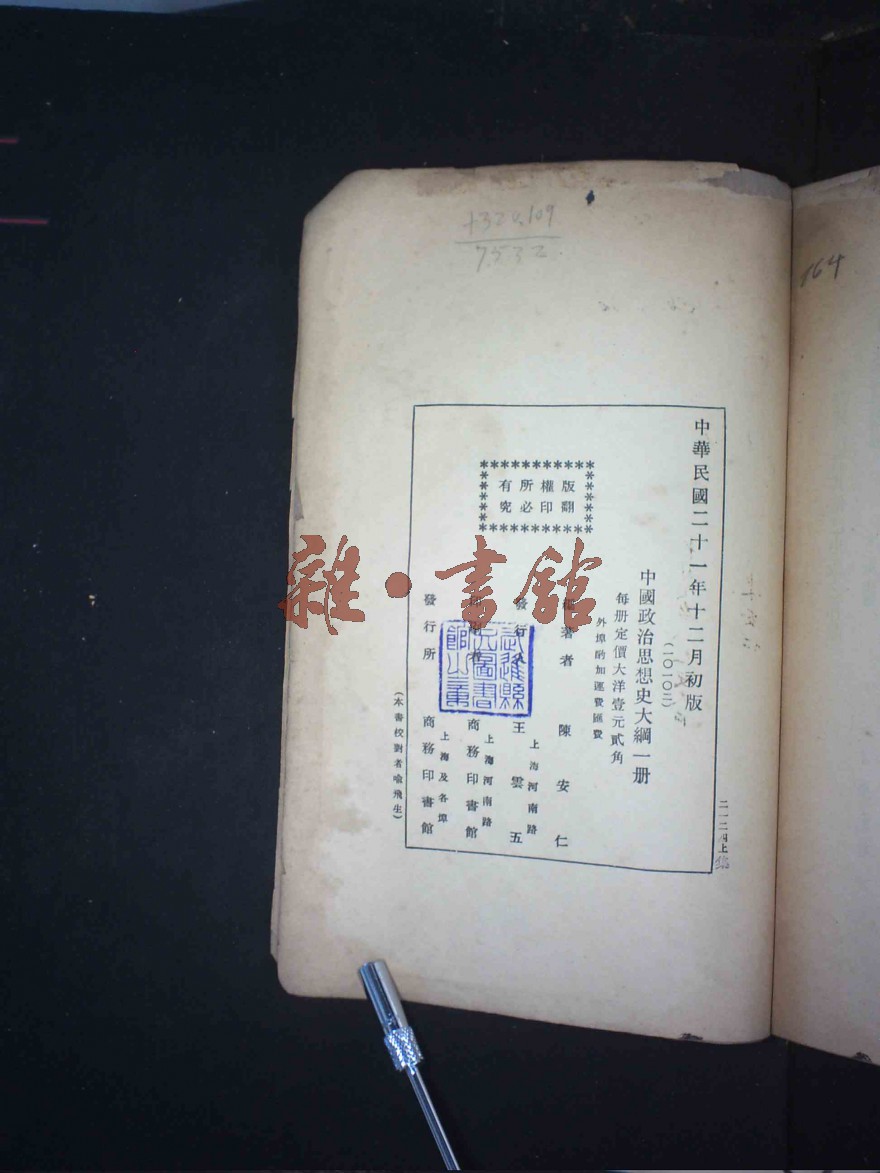 7532
164
中華民國二十一年十二月初版
(二〇一〇二)
中國政治思想史大綱一册
每册定價大洋壹元貳角
外埠酌加運費匯費
版權所有
翻印必究
著者 陳安仁
發行人 王雲五
上海河南路
上海河南路
商務印書館
發行所 商務印書館
上海及各埠
(本書校對者喩飛生)
雜·書館
武進縣
圖書